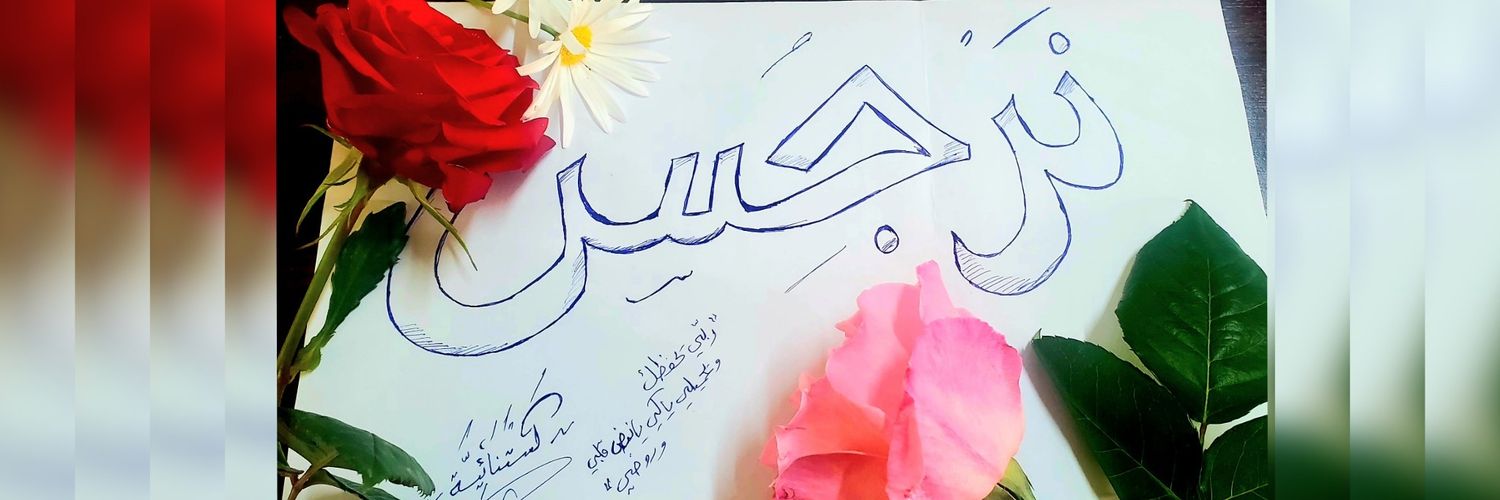 نرجس
"ربّي يحفظك
ويخليلي ياكي يا نبض قلبي
وروحي"
كستنائيّة